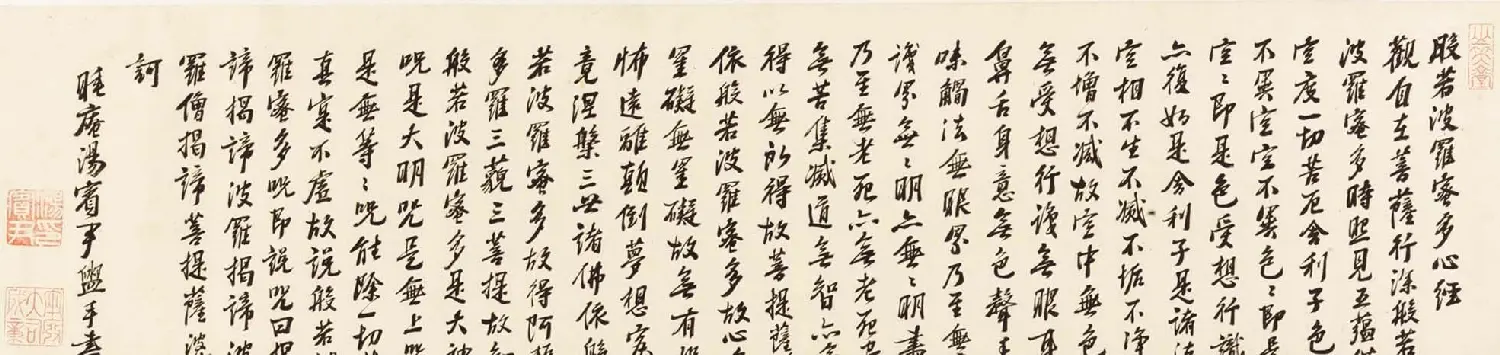 般若波羅蜜多心經
觀自在菩薩行深般若
波羅蜜多時照見五蘊
空度一切苦厄舍利子色
不異空空不異色色〻即是
空〻即是色受想行識
亦復如是舍利子是諸法
空相不生不滅不垢不淨
不增不減故空中無色
無受想行識無眼耳
鼻舌身意無色聲
味觸法無眼界乃至無
識界無〻明亦無〻明盡
乃至無老死亦無老死盡
無苦集滅道無智亦無
得以無所得故菩提薩
依般若波羅蜜多故心
罣礙無罣礙故無有恐
怖遠離顛倒夢想究
竟涅槃三世諸佛依般
若波羅蜜多故得阿耨
多羅三藐三菩提故知
般若波羅蜜多是大神
咒是大明咒是無上咒
是無等〻咒能除一切
真實不虛故說般若波
羅蜜多咒即說咒曰揭
諦揭諦波羅揭諦波
羅僧揭諦菩提薩婆
訶
睡庵湯賓尹盥手書